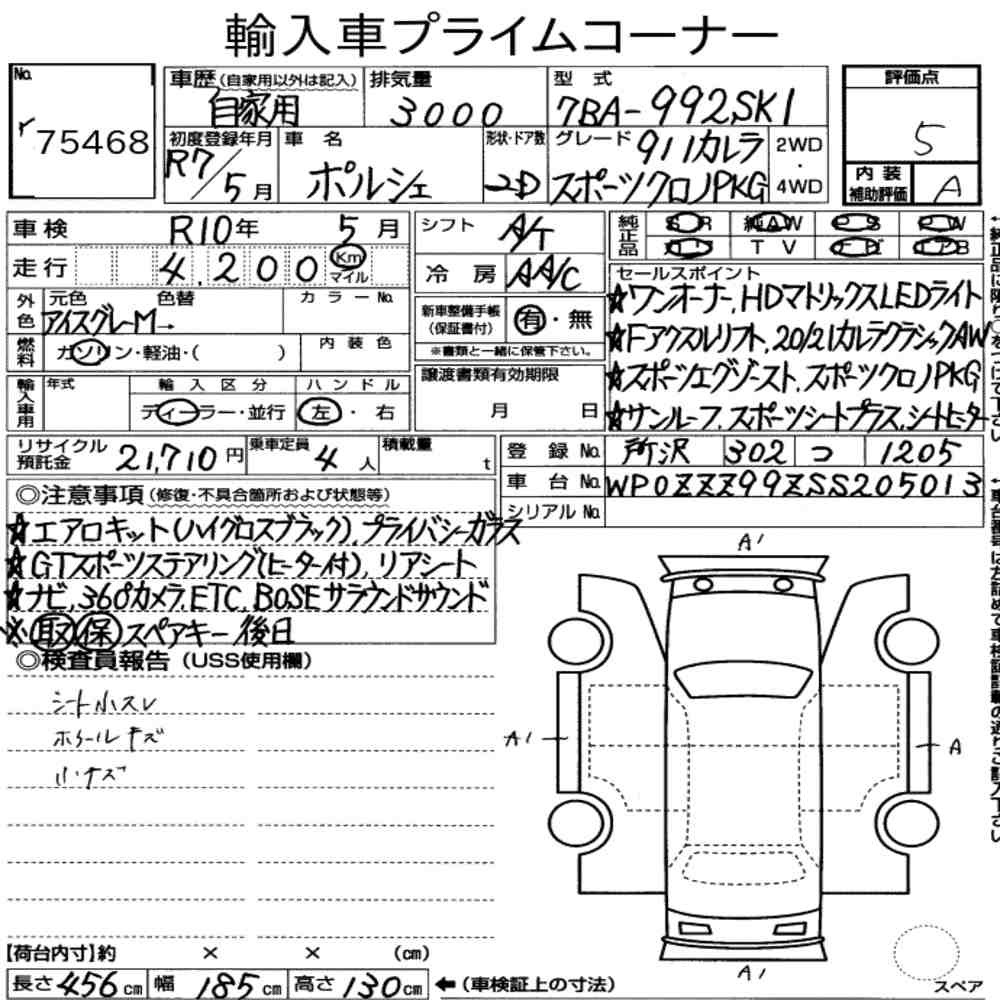 輸入車プライムコーナー
No. r 75468
車歴(自家用以外は記入) 自家用
排気量 3000
型式 7BA-992SK1
評価点 5
内装補助評価 A
初度登録年月 R7/5月
車名 ポルシェ
形状・ドア数 2D
グレード 911カレラ スポーツクロノPKG
2WD・4WD
車検 R10年 5月
走行 4,200 Km マイル
外色 元色 アイスグレーM→ 色替
カラーNo.
燃料 ガソリン・軽油・( )
内装色
輸入車用 年式
輸入区分 ディーラー・並行
ハンドル 左・右
シフト A/T
冷房 AA/C
新車整備手帳(保証書付) 有・無
※書類と一緒に保管下さい。
譲渡書類有効期限
月 日
純正品 SR 純AW PS PW
カワ TV ナビ エアB
セールスポイント
☆ワンオーナー、HDマトリックスLEDライト
☆Fアクスルリフト、20/21カレラクラシックAW
☆スポーツエグゾースト、スポーツクロノPKG
☆サンルーフ、スポーツシートプラス、シートヒーター
リサイクル預託金 21,710円
乗車定員 4人
積載量 t
登録No. 所沢 302 つ 1205
車台No. WP0ZZZ99ZSS205013
シリアルNo.
◎注意事項(修復・不具合箇所および状態等)
☆エアロキット(ハイグロスブラック)、プライバシーガラス
☆GTスポーツステアリング(ヒーター付)、リアシート
☆ナビ、360°カメラ、ETC、BOSEサラウンドサウンド
※取保スペアキー後日
◎検査員報告(USS使用欄)
シート小スレ
ホイールキズ
小キズ
A1
A1
A
A1
スペア
【荷台内寸】約 × × (cm)
長さ456cm 幅185cm 高さ130cm ←(車検証上の寸法)